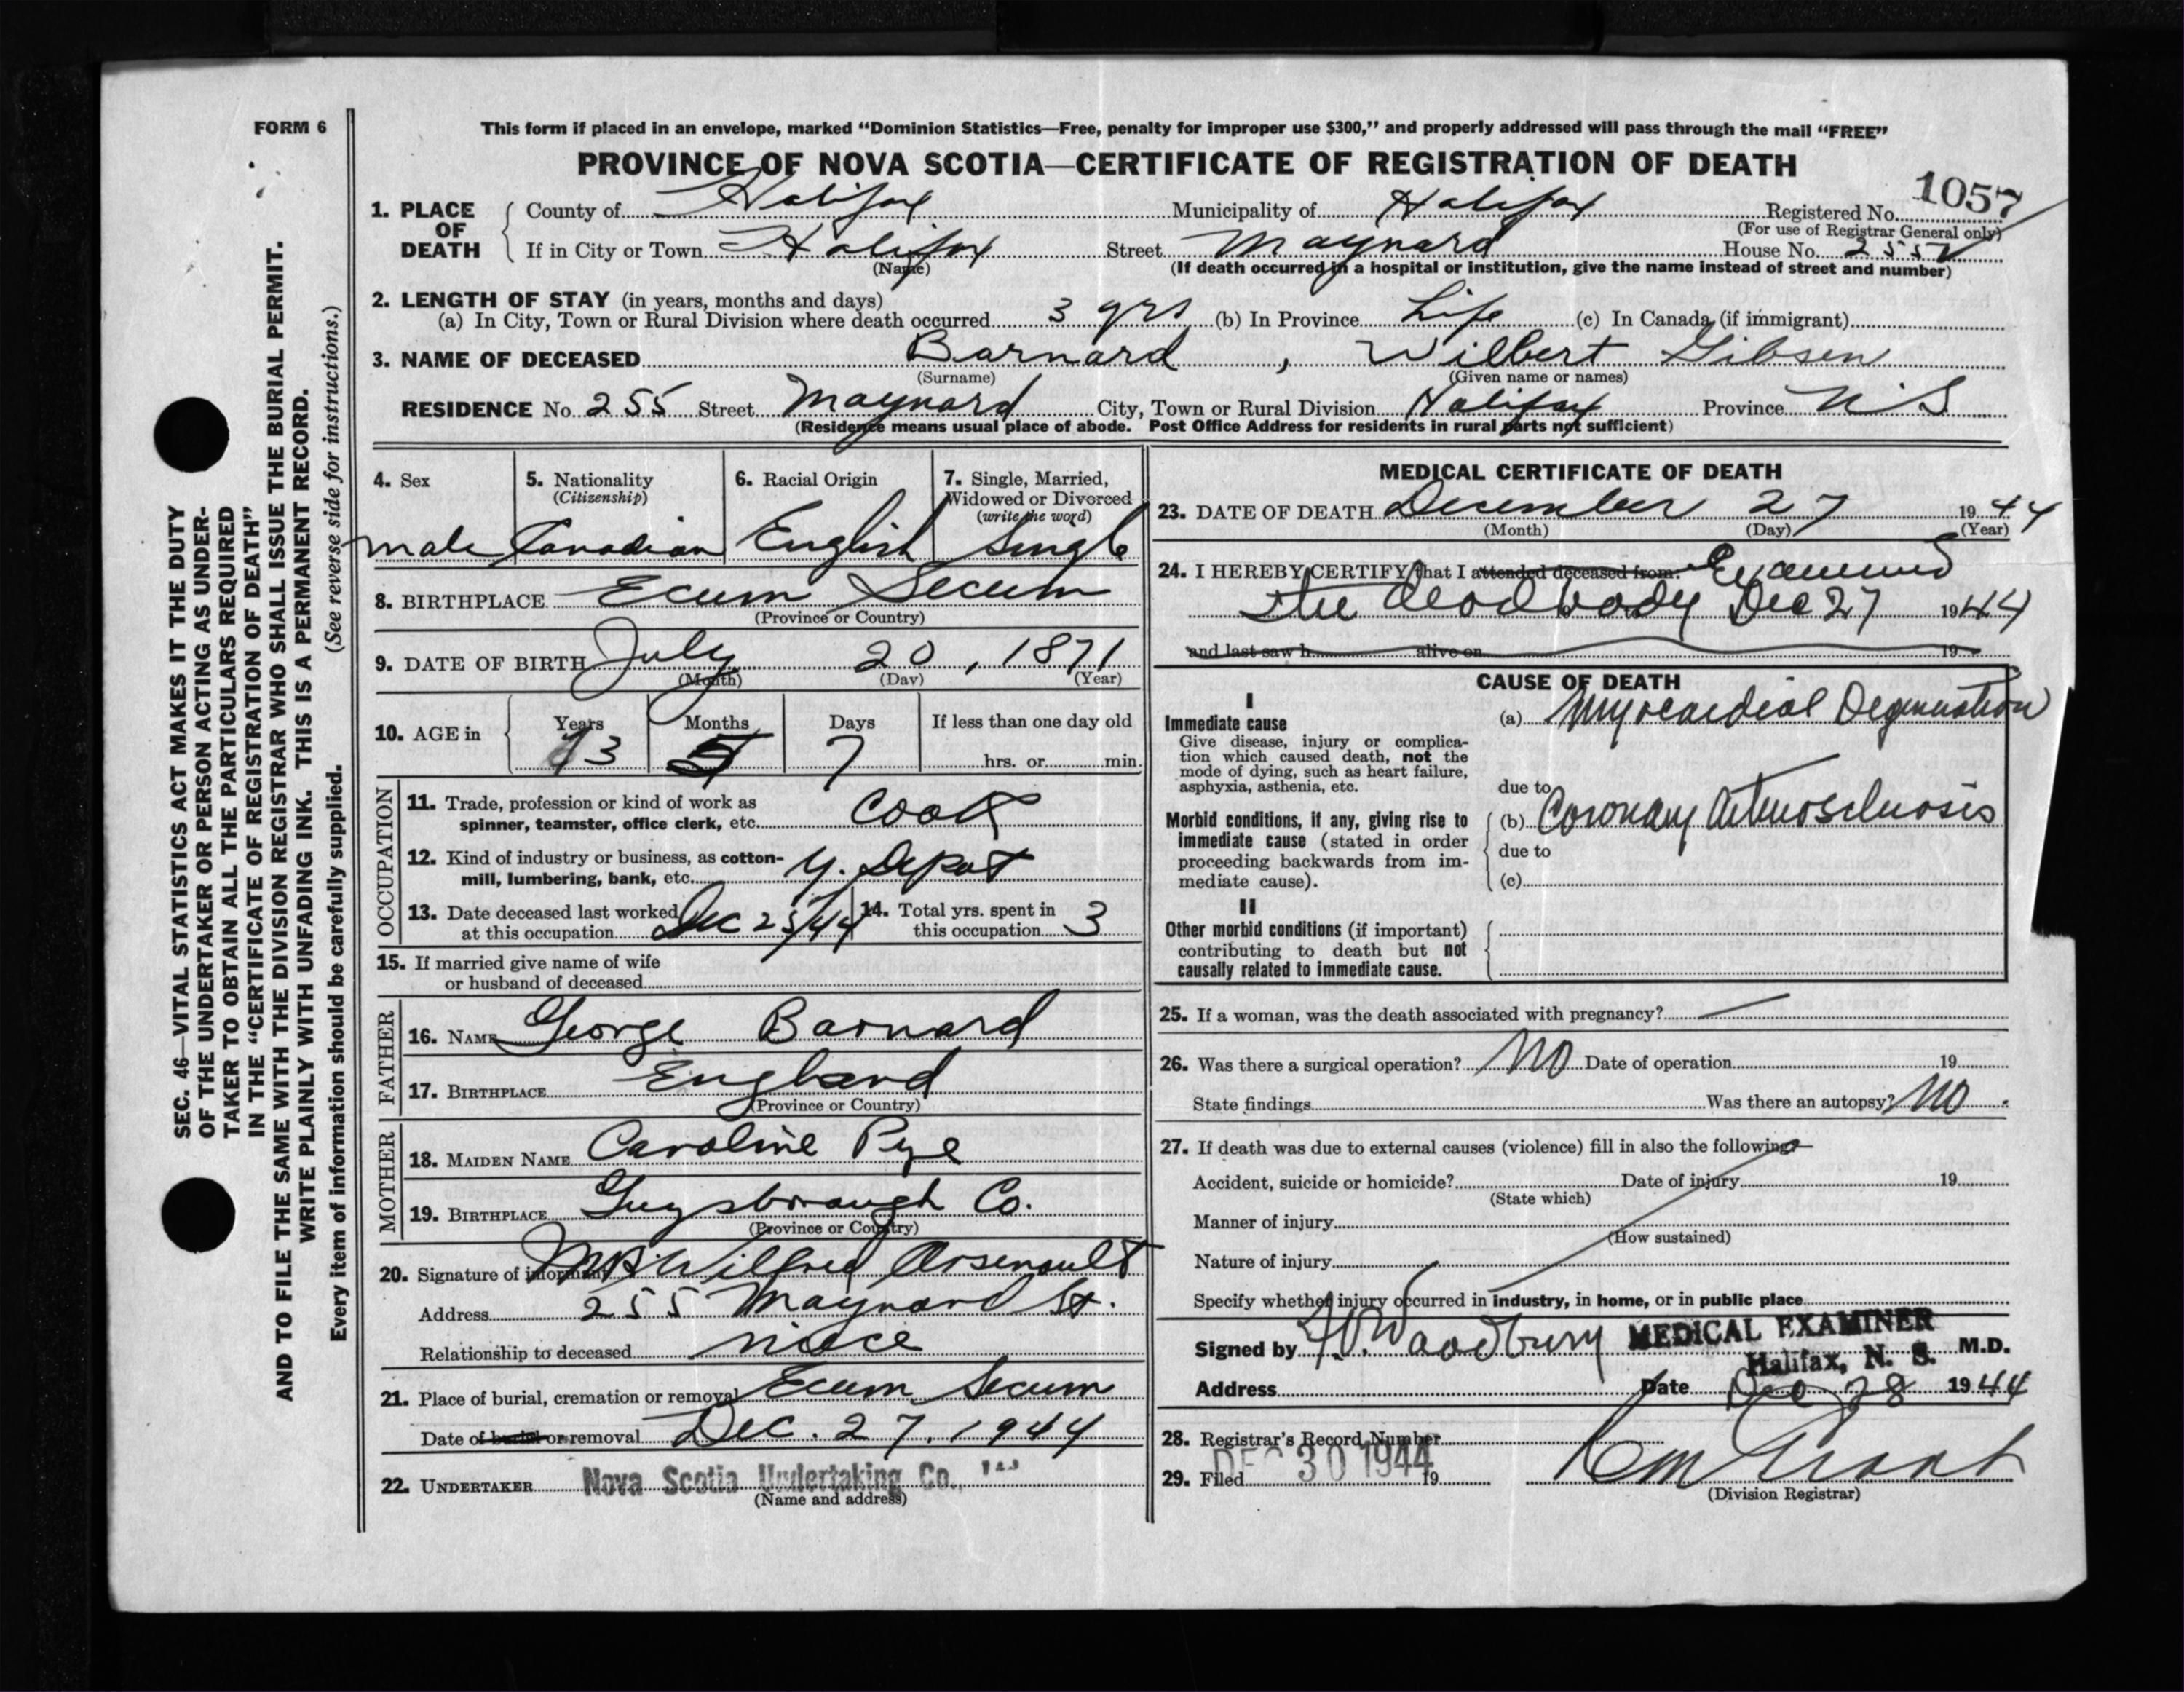 FORM 6
This form if placed in an envelope, marked "Dominion Statistics—Free, penalty for improper use $300," and properly addressed will pass through the mail "FREE"
PROVINCE OF NOVA SCOTIA—CERTIFICATE OF REGISTRATION OF DEATH
1057
1. PLACE OF DEATH
County of Halifax Municipality of Halifax Registered No.
(For use of Registrar General only)
If in City or Town Halifax Street Maynard House No. 255
(Name) (If death occurred in a hospital or institution, give the name instead of street and number)
2. LENGTH OF STAY (in years, months and days)
(a) In City, Town or Rural Division where death occurred 3 yrs (b) In Province Life (c) In Canada (if immigrant)
3. NAME OF DECEASED Barnard, Wilbert Gibson
(Surname) (Given name or names)
RESIDENCE No. 255 Street Maynard City, Town or Rural Division Halifax Province N S
(Residence means usual place of abode. Post Office Address for residents in rural parts not sufficient)
4. Sex
male
5. Nationality
(Citizenship)
Canadian
6. Racial Origin
English
7. Single, Married,
Widowed or Divorced
(write the word)
Single
8. BIRTHPLACE Ecum Secum
(Province or Country)
9. DATE OF BIRTH July 20, 1871
(Month) (Day) (Year)
10. AGE in
Years Months Days If less than one day old
73 5 7 hrs. or min.
OCCUPATION
11. Trade, profession or kind of work as
spinner, teamster, office clerk, etc. Cook
12. Kind of industry or business, as cotton-
mill, lumbering, bank, etc. Y. Depot
13. Date deceased last worked
at this occupation Dec 25/44
14. Total yrs. spent in
this occupation 3
15. If married give name of wife
or husband of deceased
FATHER
16. NAME George Barnard
17. BIRTHPLACE England
(Province or Country)
MOTHER
18. MAIDEN NAME Caroline Pye
19. BIRTHPLACE Guysborough Co.
(Province or Country)
20. Signature of informant Mrs Wilfred Arsenault
Address 255 Maynard St.
Relationship to deceased niece
21. Place of burial, cremation or removal Ecum Secum
Date of burial or removal Dec. 27. 1944
22. UNDERTAKER Nova Scotia Undertaking Co.,
(Name and address)
MEDICAL CERTIFICATE OF DEATH
23. DATE OF DEATH December 27 1944
(Month) (Day) (Year)
24. I HEREBY CERTIFY that I attended deceased from: Examined
the dead body Dec 27 1944
and last saw h alive on 19
CAUSE OF DEATH
I
Immediate cause
Give disease, injury or complica-
tion which caused death, not the
mode of dying, such as heart failure,
asphyxia, asthenia, etc.
(a) Myocardial Degeneration
due to
Morbid conditions, if any, giving rise to
immediate cause (stated in order
proceeding backwards from im-
mediate cause).
(b) Coronary Arteriosclerosis
due to
(c)
II
Other morbid conditions (if important)
contributing to death but not
causally related to immediate cause.
25. If a woman, was the death associated with pregnancy? —
26. Was there a surgical operation? No Date of operation 19
State findings Was there an autopsy? No
27. If death was due to external causes (violence) fill in also the following:—
Accident, suicide or homicide? Date of injury 19
(State which)
Manner of injury
(How sustained)
Nature of injury
Specify whether injury occurred in industry, in home, or in public place
Signed by Woodbury MEDICAL EXAMINER M.D.
Halifax, N. S.
Address Date Dec 28 1944
28. Registrar's Record Number
29. Filed DEC 30 1944 19
Grant
(Division Registrar)
SEC. 46—VITAL STATISTICS ACT MAKES IT THE DUTY
OF THE UNDERTAKER OR PERSON ACTING AS UNDER-
TAKER TO OBTAIN ALL THE PARTICULARS REQUIRED
IN THE "CERTIFICATE OF REGISTRATION OF DEATH"
AND TO FILE THE SAME WITH THE DIVISION REGISTRAR WHO SHALL ISSUE THE BURIAL PERMIT.
WRITE PLAINLY WITH UNFADING INK. THIS IS A PERMANENT RECORD.
Every item of information should be carefully supplied. (See reverse side for instructions.)